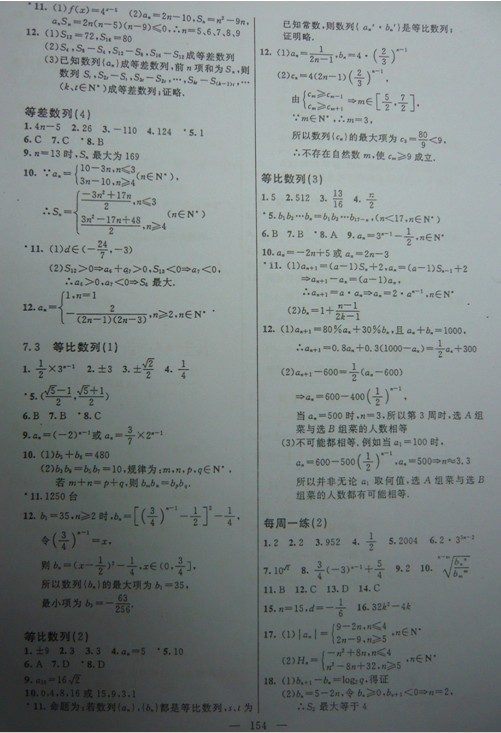 *11. (1)f(x)=4ˣ⁻² (2)aₙ=2n-10,Sₙ=n²-9n,
aₙSₙ=2n(n-5)(n-9)≤0,∴n=5,6,7,8,9
12. (1)S₁₂=72,S₁₆=80
(2)S₄,S₈-S₄,S₁₂-S₈,S₁₆-S₁₂成等差数列
(3)已知数列{aₙ}成等差数列,前n项和为Sₙ,则
(k,t∈N*)成等差数列;证略.
等差数列(4)
1. 4n-5 2. 26 3. -110 4. 124 *5. 1
6. C 7. C *8. B
9. n=13时,Sₙ最大为169
10. ∵aₙ={10-3n,n≤3 3n-10,n≥4 (n∈N*),
∴Sₙ={(-3n²+17n)/2,n≤3 (3n²-17n+48)/2,n≥4 (n∈N*)
*11. (1)d∈(-24/7,-3)
(2)S₁₂>0⇒a₆+a₇>0,S₁₃<0⇒a₇<0,
∴a₆>0,a₇<0⇒S₆最大.
12. aₙ={1,n=1 -2/((2n-1)(2n-3)),n≥2,n∈N*
7.3 等比数列(1)
1. 1/2×3ⁿ⁻¹ 2. ±3 3. ±√2/2 4. 1/4
*5. ((√5-1)/2,(√5+1)/2)
6. B 7. B *8. C
9. aₙ=(-2)ⁿ⁻¹或aₙ=3/7×2ⁿ⁻¹
10. (1)b₅+b₆=480
(2)b₃b₈=b₅b₇=10,规律为:m,n,p,q∈N*,
若m+n=p+q,则bₘbₙ=bₚb_q.
*11. 1250台
12. b₁=35,n≥2时,bₙ=[(3/4)ⁿ⁻¹-1/2]²-1/4,
令(3/4)ⁿ⁻¹=x,
则bₙ=(x-1/2)²-1/4,x∈(0,3/4],
所以数列{bₙ}的最大项为b₁=35,
最小项为b₃=-63/256.
等比数列(2)
1. ±9 2. 3 3. 3 4. aₙ=5 *5. 10
6. A 7. D *8. D
9. a₁₀=16√2
10. 0,4,8,16或15,9,3,1
*11. 命题为:若数列{aₙ},{bₙ}都是等比数列,s,t为
已知常数,则数列{aₙˢ·bₙᵗ}是等比数列;
证明略.
12. (1)aₙ=1/(2n-1),bₙ=4·(2/3)ⁿ⁻¹
(2)cₙ=4(2n-1)(2/3)ⁿ⁻¹,
由{cₘ≥cₘ₋₁ cₘ≥cₘ₊₁⇒m∈[5/2,7/2],
∵m∈N*,∴m=3,
所以数列{cₙ}的最大项为c₃=80/9<9,
∴不存在自然数m,使cₘ≥9成立.
等比数列(3)
1. 5 2. 512 3. 13/16 4. n/2
*5. b₁b₂…bₙ=b₁b₂…b₁₇₋ₙ,(n<17,n∈N*)
6. B 7. B *8. A 9. aₙ=3ⁿ⁻¹-1/2,n∈N*
10. aₙ=-2n+5或aₙ=2n-3
*11. (1)aₙ₊₁=(a-1)Sₙ+2,aₙ=(a-1)Sₙ₋₁+2
⇒aₙ₊₁-aₙ=(a-1)aₙ,
∴aₙ₊₁=a·aₙ⇒aₙ=2·aⁿ⁻¹,n∈N*
(2)bₙ=1+(n-1)/(2k-1)
12. (1)aₙ₊₁=80%aₙ+30%bₙ,且aₙ+bₙ=1000,
∴aₙ₊₁=0.8aₙ+0.3(1000-aₙ)=1/2aₙ+300
(2)aₙ₊₁-600=1/2(aₙ-600)
⇒aₙ=600-400(1/2)ⁿ⁻¹,
当aₙ=500时,n=3,所以第3周时,选A组
菜与选B组菜的人数相等
(3)不可能都相等.例如当a₁=100时,
aₙ=600-500(1/2)ⁿ⁻¹,aₙ=500⇒n≈3.3
所以并非无论a₁取何值,选A组菜与选B
组菜的人数都有可能相等.
每周一练(2)
1. 2 2. 2 3. 952 4. 1/2 5. 2004 6. 2·3⁵ⁿ⁻²
8. 3/4(-3)ⁿ⁻¹+5/4 9. 2
11. B 12. C 13. D 14. C
15. n=15,d=-1/6 16. 32k²-4k
17. (1)|aₙ|={9-2n,n≤4 2n-9,n≥5,n∈N*
(2)Hₙ={-n²+8n,n≤4 n²-8n+32,n≥5,n∈N*
18. (1)bₙ₊₁-bₙ=log₂q,得证
(2)bₙ=5-2n,令bₙ≥0,bₙ₊₁<0⇒n=2,
∴S₂最大等于4
— 154 —